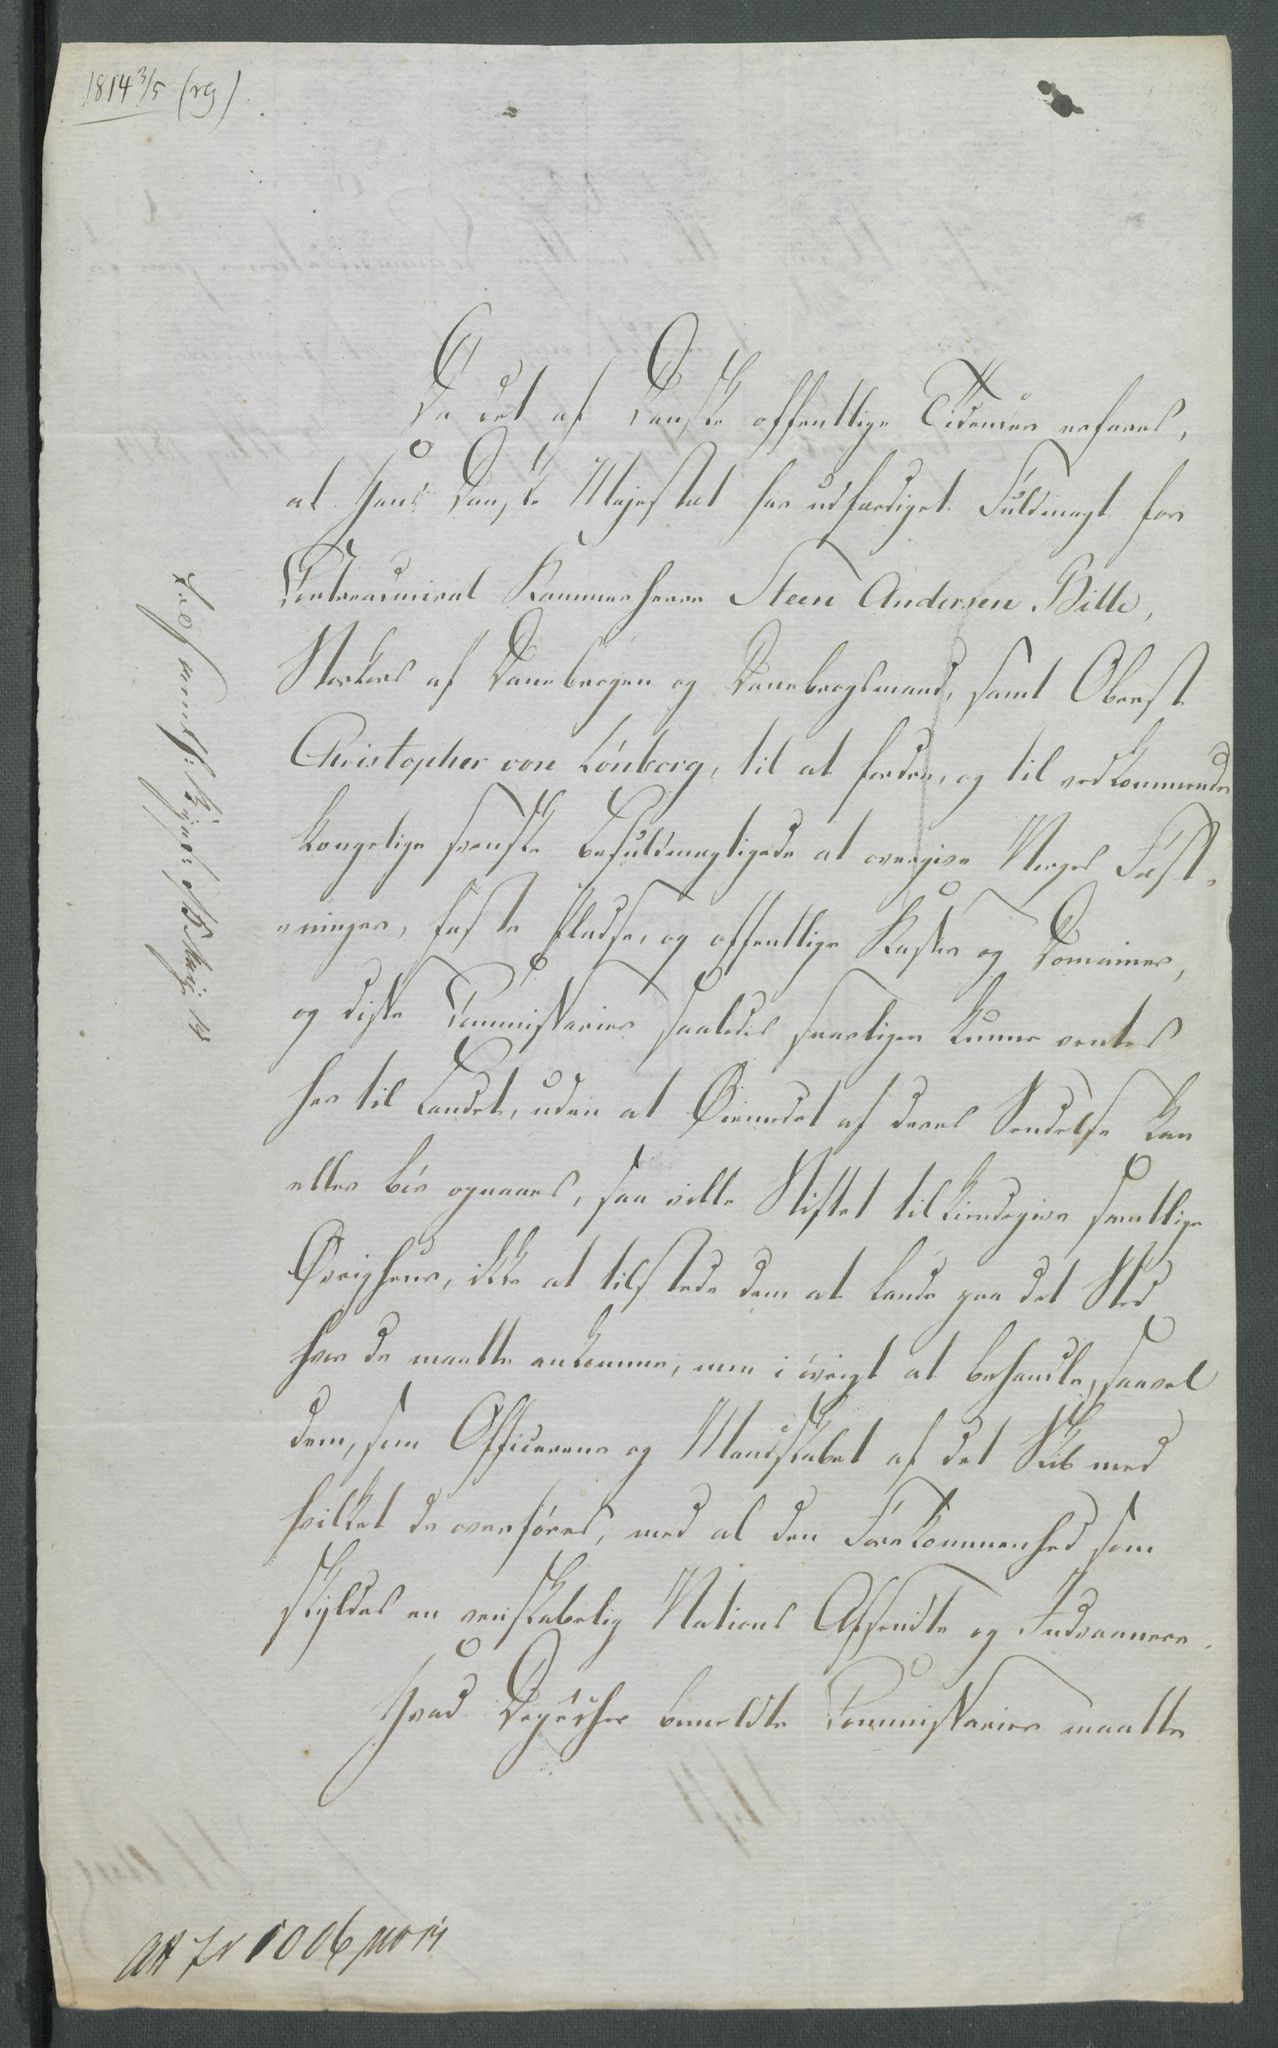 1814 3/5 (rg)
Da det af Danske offentlige Tidender erfares,
at Hans Danske Majestæt har udfærdiget Fuldmagt for
Contreadmiral Kammerherre Steen Andersen Bille,
Storkors af Danebrogen og Danebrogsmand, samt Oberst
Christopher von Lönborg, til at fordre, og til vedkommende
kongelige svenske befuldmægtigede at overgive Norges Fæst-
ninger, faste Pladse, og offentlige Kasser og Domainer,
og disse Commissarier saaledes snarligen kunne ventes
her til Landet, uden at Øiemedet af deres Sendelse kan
eller bör opnaaes, saa ville Stiftet tilkiendegive samtlige
Øvrigheder, ikke at tilstede dem at lande paa det Sted
hvor de maatte ankomme, men i övrigt at behandle, saavel
dem, som Officererne og Mandskabet af det Skib med
hvilket de overföres, med al den Forekommenhed som
skyldes en venskabelig Nations Affsendte og Indvaanere.
Hvad Depecher bemeldte Commissarier maatte
1006